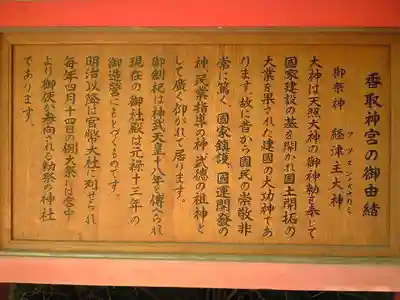 香取神宮の御由緒
フツヌシノオオカミ
御祭神 経津主大神
大神は天照大神の御神勅を奉じて
國家建設の基を開かれ國土開拓の
大業を果された建國の大功神であ
ります。故に昔から國民の崇敬非
常に篤く、國家鎮護、國運開發の
神、民業指導の神、武徳の祖神と
して廣く仰がれて居ります。
御創祀は神武天皇十八年と傳へられ
現在の御社殿は元禄十三年の
御造營にもとづくものです。
明治以降は官幣大社に列せられ
毎年四月十四日の例大祭には宮中
より御使が参向される勅祭の神社
であります。